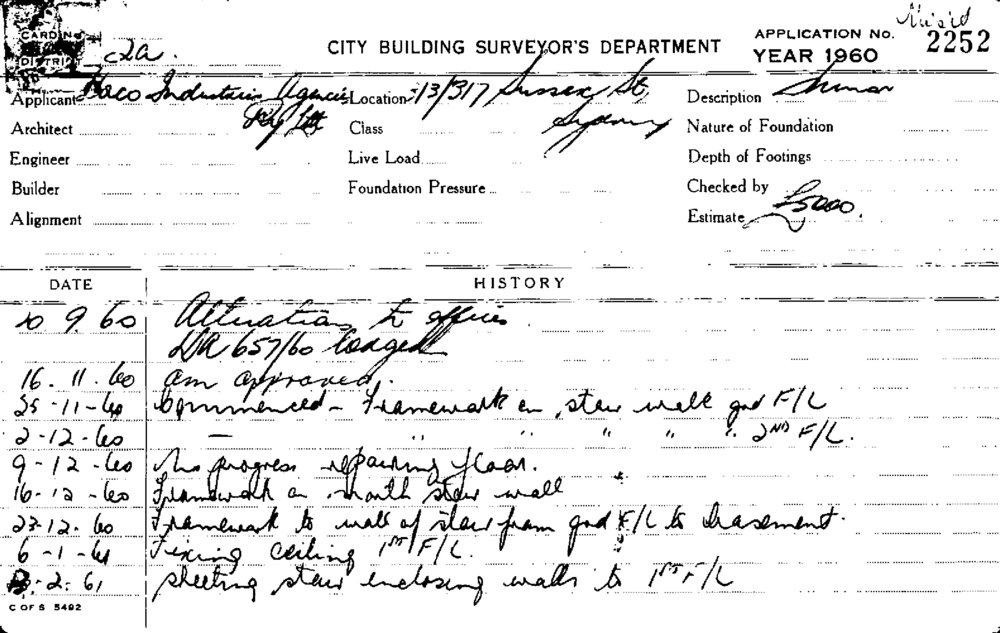 CITY BUILDING SURVEYOR'S DEPARTMENT
APPLICATION No. 2252
YEAR 1960
Applicant Haco Industries Agencies Pty Ltd
Location 313/317 Sussex St, Sydney
Description
Architect
Class
Nature of Foundation
Engineer
Live Load
Depth of Footings
Builder
Foundation Pressure
Checked by
Alignment
Estimate £5000.
DATE HISTORY
20 9 60 Alterations to offices
DA 657/60 lodged
16. 11. 60 am approved.
25-11-60 Commenced - Framework on stair wall gnd F/L
2-12-60 — " " " " " 2ND F/L.
9-12-60 No progress repairing floor.
16-12-60 Framework on north stair wall
22-12-60 Framework to wall of stair from gnd F/L to basement.
6-1-61 Fixing ceiling 1ST F/L.
2. 61 sheeting stair enclosing walls to 1ST F/L
C OF S 5492